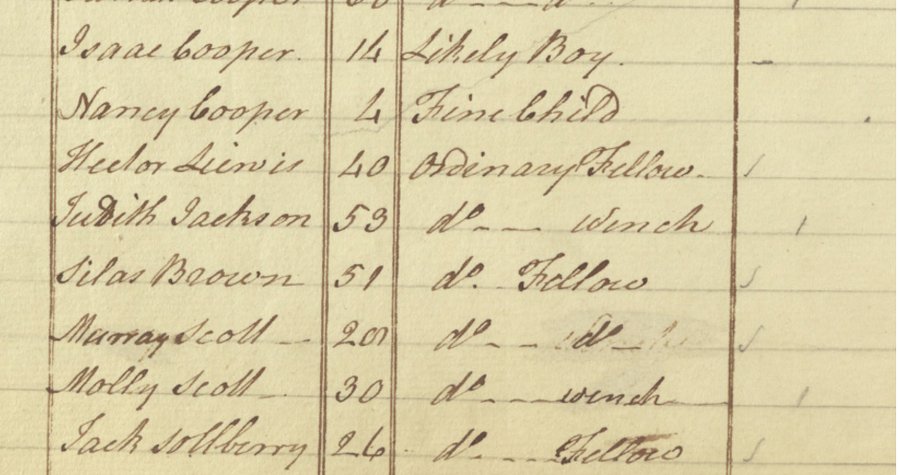 Cooper 30 do
Isaac Cooper. 14 Likely Boy. –
Nancy Cooper 4 Fine Child
Hector Liewis 40 Ordinary Fellow. /
Judith Jackson 53 do - - - wench 1
Silas Brown 51 do. Fellow /
Murray Scott - - do - - do - /
Molly Scott - 30 do - - - wench 1
Jack Sollberry 26 do - - - Fellow /